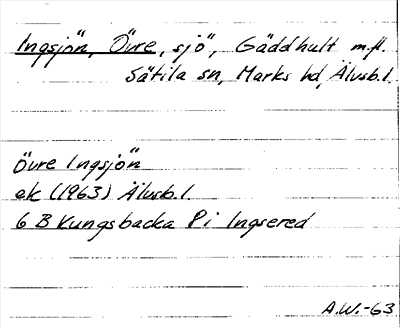 Ingsjön, Övre, sjö, Gäddhult m.fl.
Sätila sn, Marks hd, Älvsb.l.
Övre Ingsjön
ek (1963) Älvsb.l.
6 B Kungsbacka P i Ingsered
A.W.-63